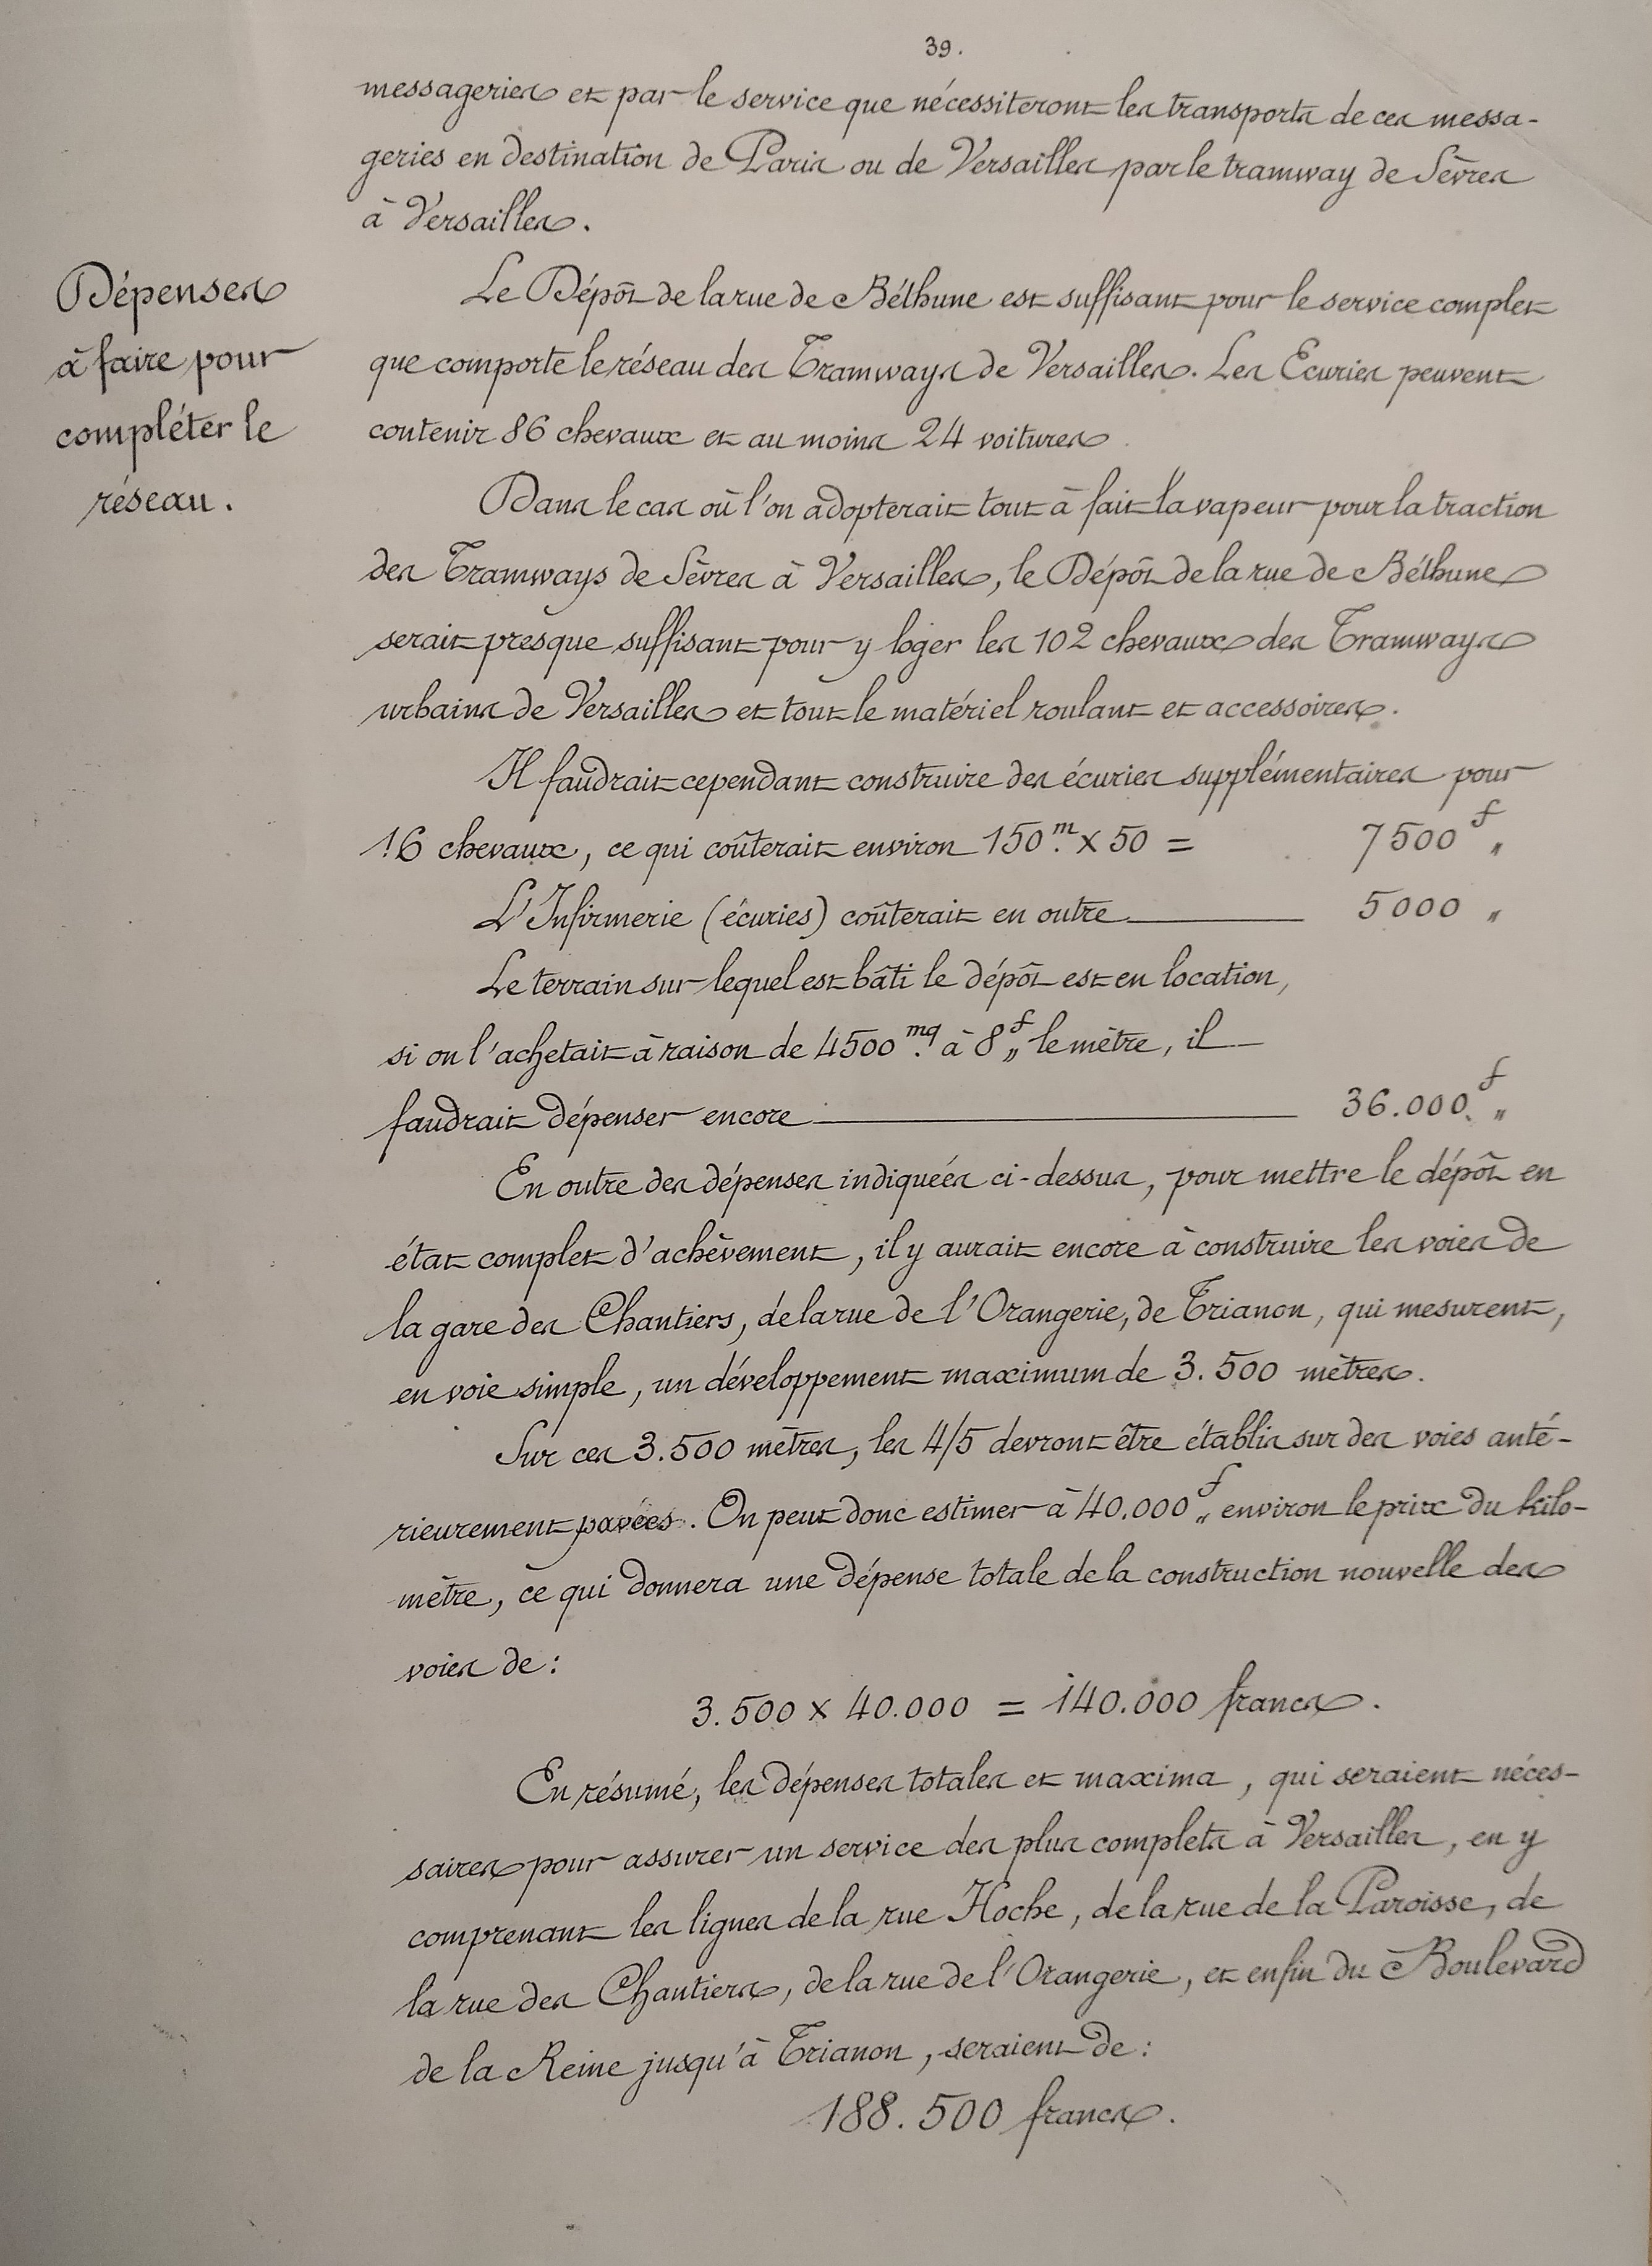 39.
messageries et par le service que nécessiteront les transports de ces messa-
geries en destination de Paris ou de Versailles par le tramway de Sèvres
à Versailles.
Dépenses
à faire pour
compléter le
réseau.
Le Dépôt de la rue de Béthune est suffisant pour le service complet
que comporte le réseau des Tramways de Versailles. Les Ecuries peuvent
contenir 86 chevaux et au moins 24 voitures.
Dans le cas où l'on adopterait tout à fait la vapeur pour la traction
des Tramways de Sèvres à Versailles, le Dépôt de la rue de Béthune
serait presque suffisant pour y loger les 102 chevaux des Tramways
urbains de Versailles et tout le matériel roulant et accessoires.
Il faudrait cependant construire des écuries supplémentaires pour
16 chevaux, ce qui coûterait environ 150.m × 50 = 7500 f "
L'Infirmerie (écuries) coûterait en outre — 5000 "
Le terrain sur lequel est bâti le dépôt est en location,
si on l'achetait à raison de 4500.mq à 8 f " le mètre, il
faudrait dépenser encore — 36.000. f "
En outre des dépenses indiquées ci-dessus, pour mettre le dépôt en
état complet d'achèvement, il y aurait encore à construire les voies de
la gare des Chantiers, de la rue de l'Orangerie, de Trianon, qui mesurent,
en voie simple, un développement maximum de 3.500 mètres.
Sur ces 3.500 mètres, les 4/5 devront être établis sur des voies anté-
rieurement pavées. On peut donc estimer à 40.000 f " environ le prix du kilo-
mètre, ce qui donnera une dépense totale de la construction nouvelle des
voies de :
3.500 × 40.000 = 140.000 francs.
En résumé, les dépenses totales et maxima, qui seraient néces-
saires pour assurer un service des plus complets à Versailles, en y
comprenant les lignes de la rue Hoche, de la rue de la Paroisse, de
la rue des Chantiers, de la rue de l'Orangerie, et enfin du Boulevard
de la Reine jusqu'à Trianon, seraient de :
188.500 francs.